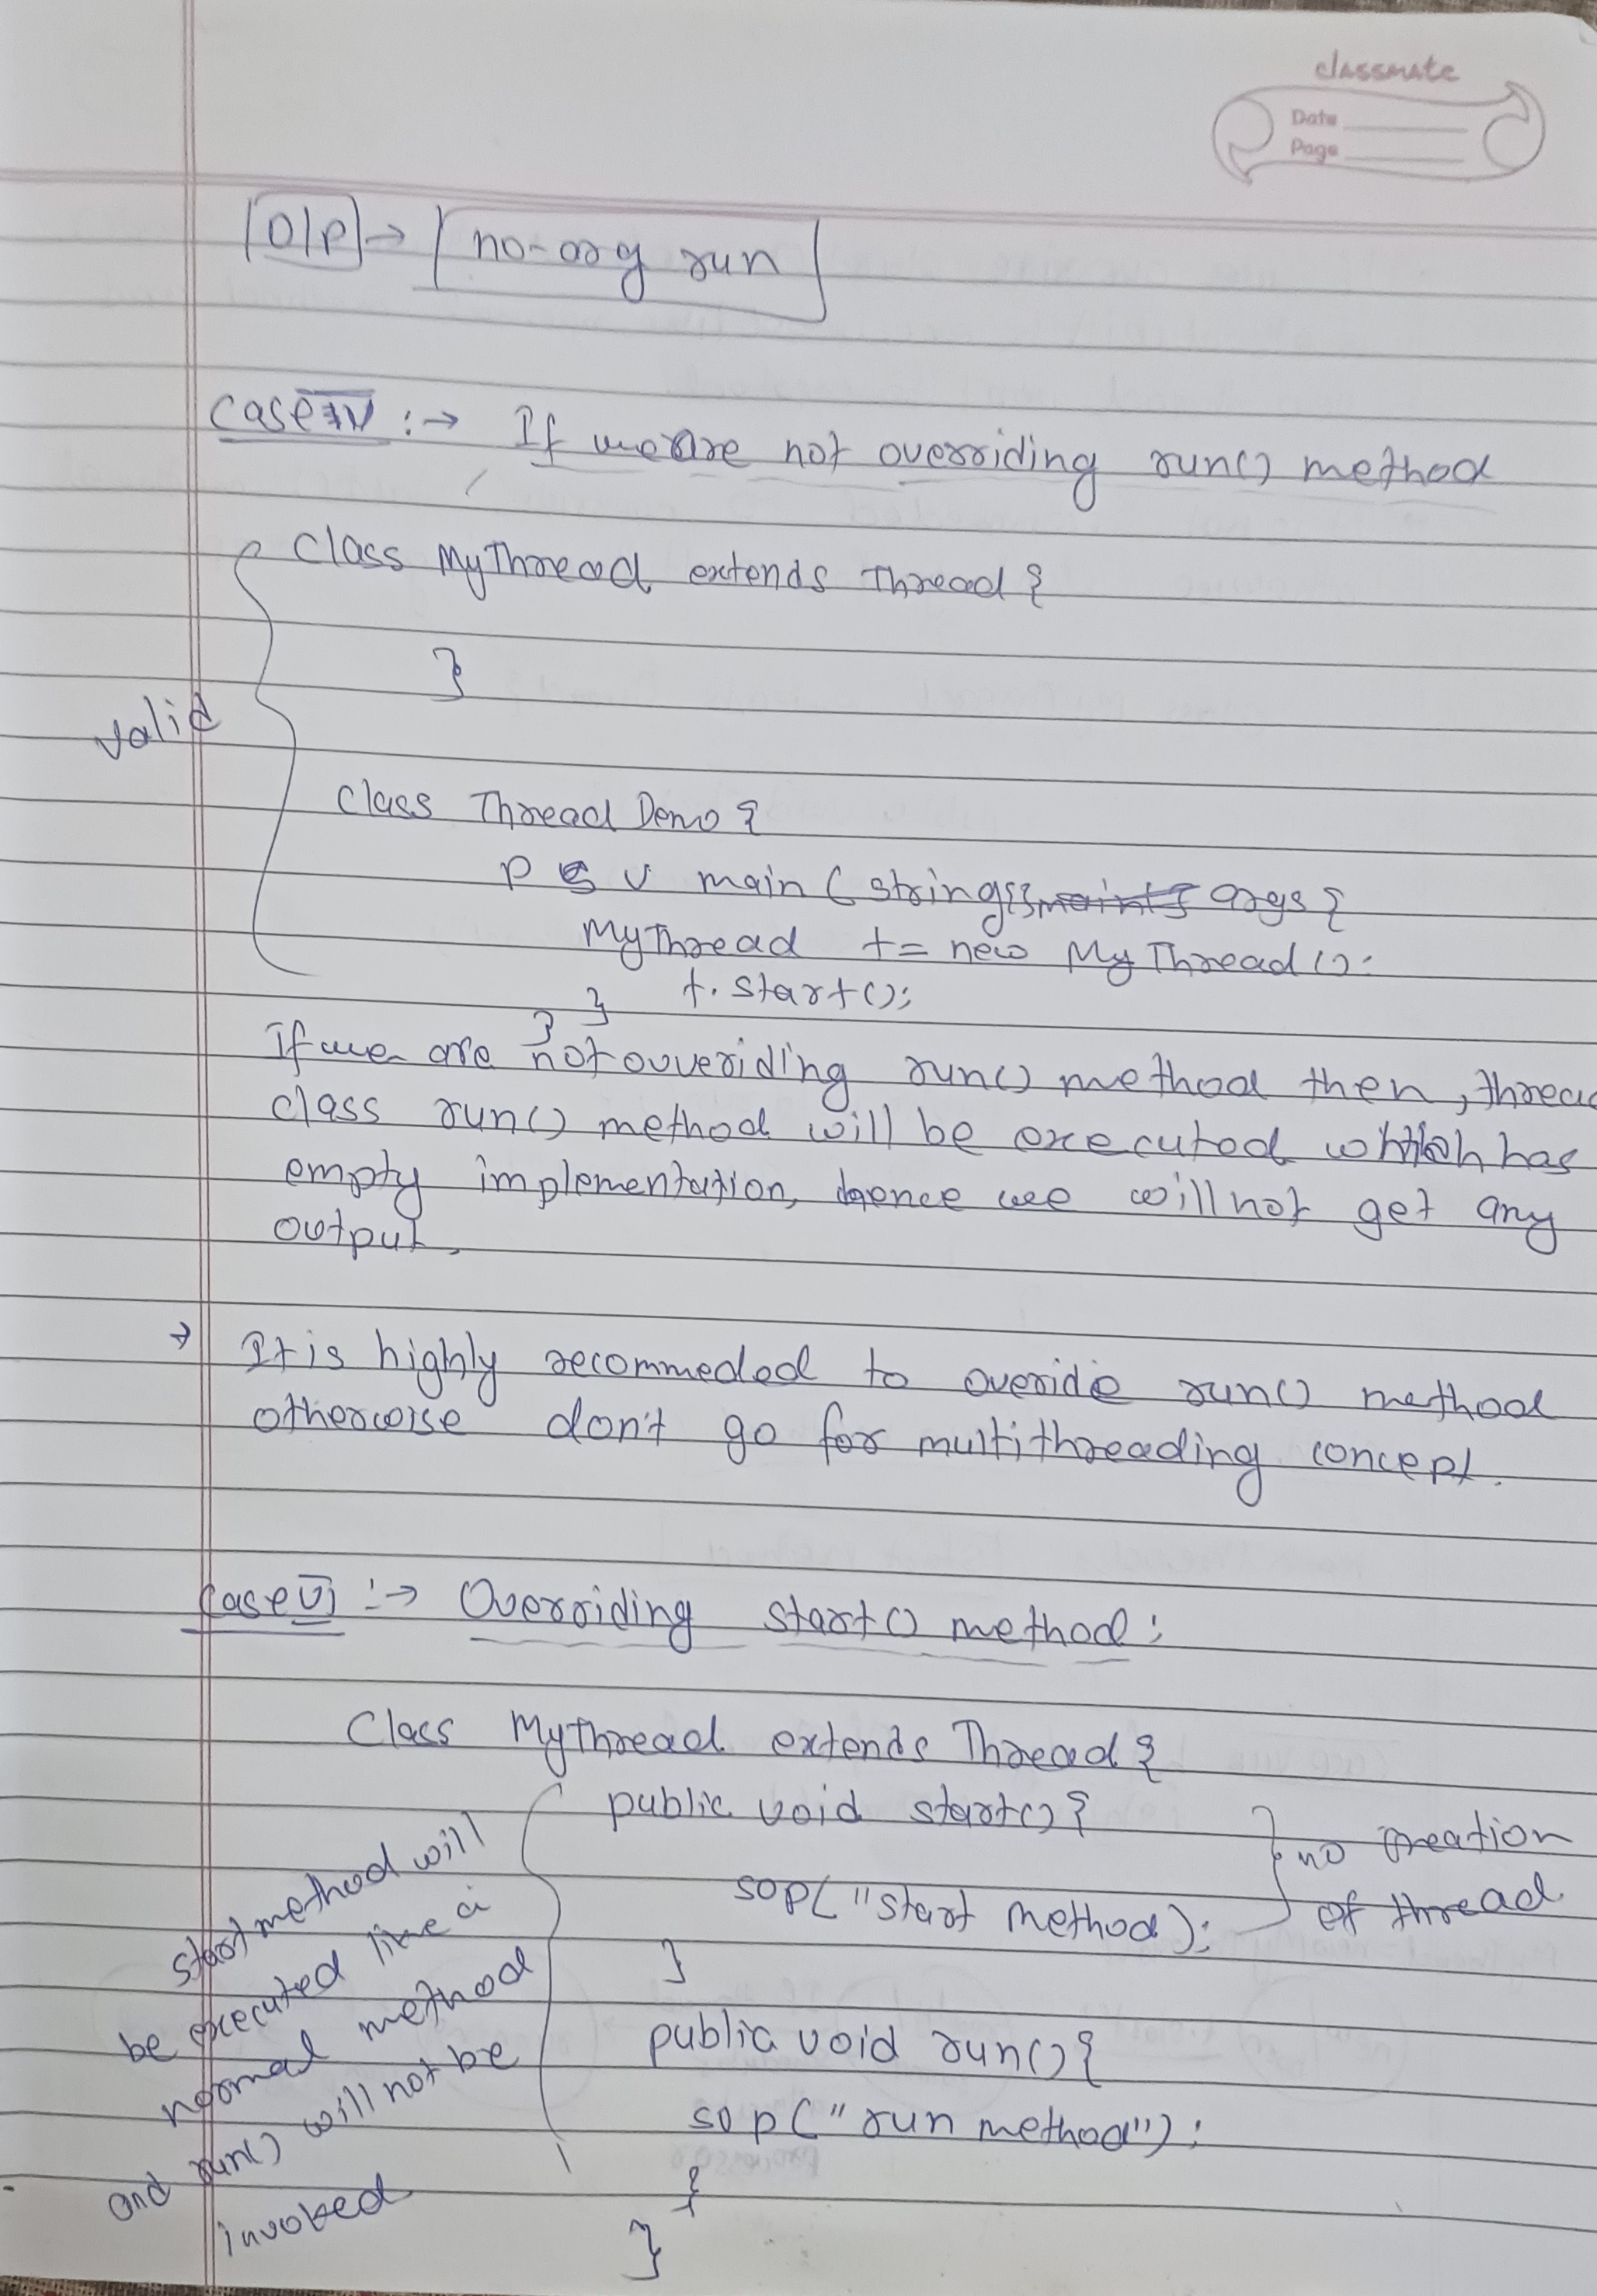 classmate
Date
Page
O/P → no-arg run
Case IV :→ If we are not overriding run() method
Class MyThread extends Thread {
}
valid
Class Thread Demo {
P S V main ( string[] args {
MyThread t = new MyThread ():
t. start();
}
}
If we are not ouveriding run() method then, threa
class run() method will be executed which has
empty implementation, hence we will not get any
output.
→ It is highly recommeded to overide run() method
otherwise don't go for multithreading concept.
Case VI :→ Overriding start() method :
Class MyThread extends Thread {
public void start() {
sop( "start method );
}
no creation
of thread
public void run() {
sop ( " run method") ;
}
}
start method will
be executed like a
normal method
and run() will not be
invoked